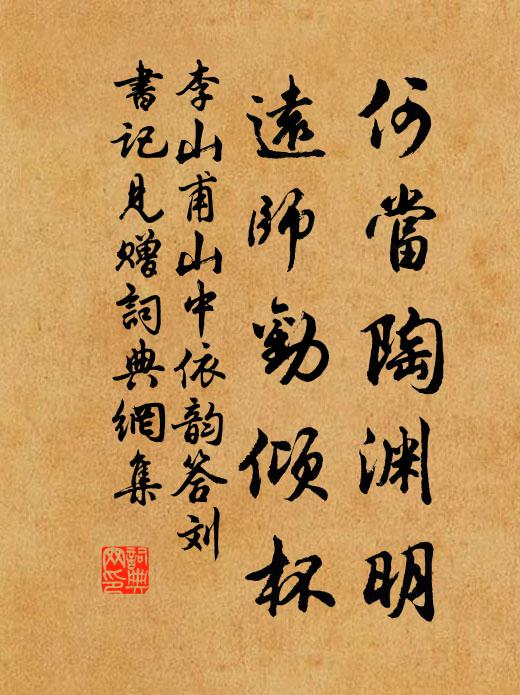 何當陶渊明
遠師勸倾杯
李山甫山中依韵答刘
書记見赠詞典網集
詞典
网印